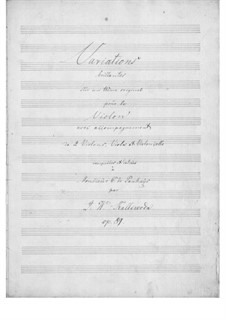 Variations
brillantes
sur un thème original
pour le
Violon
avec accompagnement
de 2 Violons, Viola et Violoncello
composées et dédiées
à
par
J. W. Kalliwoda
op. 89